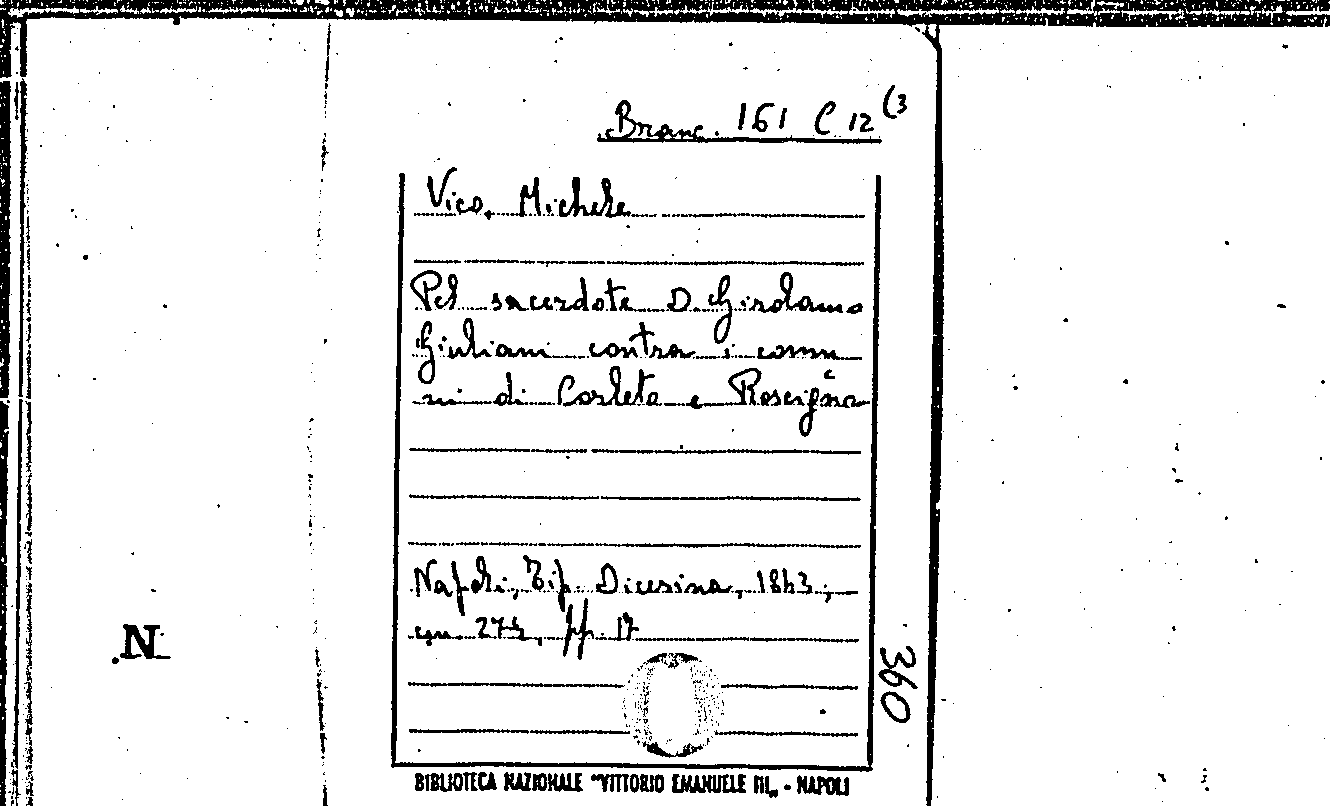 Branc. 161 C 12 (3
Vico, Michele
Pel sacerdote D. Girolamo
Giuliani contra i comu
ni di Corleto e Roscigna
Napoli, Tip. Dicesina, 1843;
cm. 27½, pp. 17
360
N
BIBLIOTECA NAZIONALE "VITTORIO EMANUELE III„ - NAPOLI